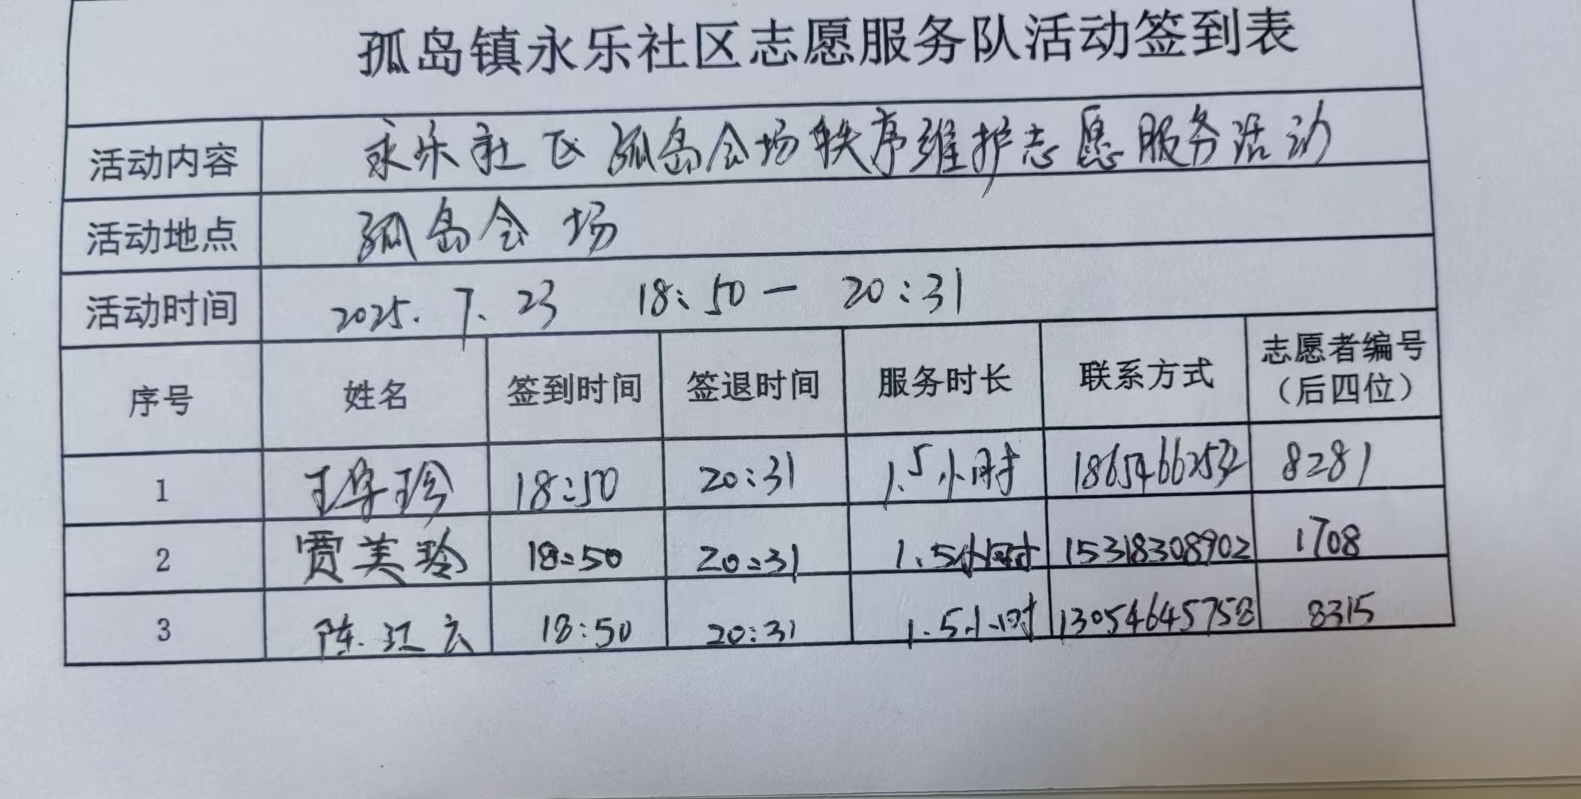 孤岛镇永乐社区志愿服务队活动签到表
活动内容 永乐社区孤岛会场秩序维护志愿服务活动
活动地点 孤岛会场
活动时间 2025.7.23 18:50—20:31
序号 姓名 签到时间 签退时间 服务时长 联系方式 志愿者编号(后四位)
1 18:50 20:31 1.5小时 8281
2 贾美玲 18:50 20:31 1.5小时 15318308902 1708
3 陈江云 18:50 20:31 1.5小时 13054645758 8315